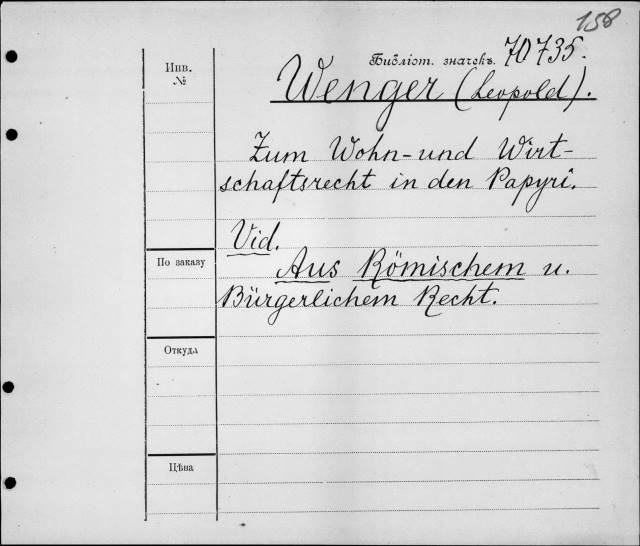 158
Инв.
№
Библіот. значекъ. 70735.
Wenger (Leopold).
Zum Wohn- und Wirt-
schaftsrecht in den Papyri.
Vid.
Aus Römischem u.
Bürgerlichem Recht.
По заказу
Откуда
Цѣна